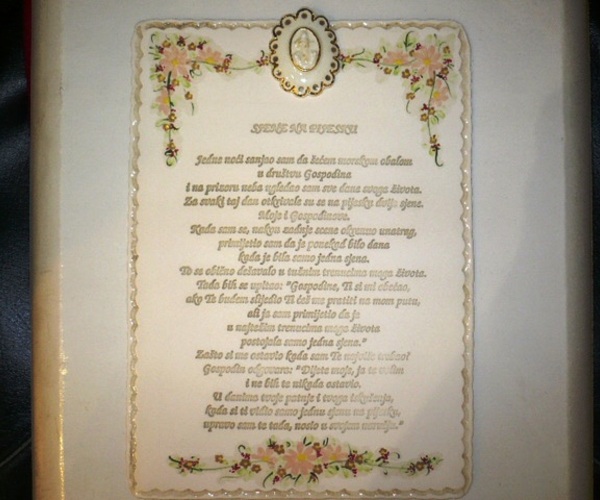 SJENE NA PIJESKU
Jedne noći sanjao sam da šećem morskom obalom
u društvu Gospodina
i na prizoru neba ugledao sam sve dane svoga života.
Za svaki taj dan otkrivale su se na pijesku dvije sjene.
Moja i Gospodinova.
Kada sam se, nakon zadnje scene okrenuo unatrag,
primijetio sam da je ponekad bilo dana
kada je bila samo jedna sjena.
To se obično dešavalo u tužnim trenucima moga života.
Tada bih se upitao: "Gospodine, Ti si mi obećao,
ako Te budem slijedio Ti ćeš me pratiti na mom putu,
ali ja sam primijetio da je
u najtežim trenucima moga života
postojala samo jedna sjena."
Zašto si me ostavio kada sam Te najviše trebao?
Gospodin odgovara: "Dijete moje, ja te volim
i ne bih te nikada ostavio.
U danima tvoje patnje i tvoga iskušenja,
kada si ti vidio samo jednu sjenu na pijesku,
upravo sam te tada, nosio u svojem naručju."